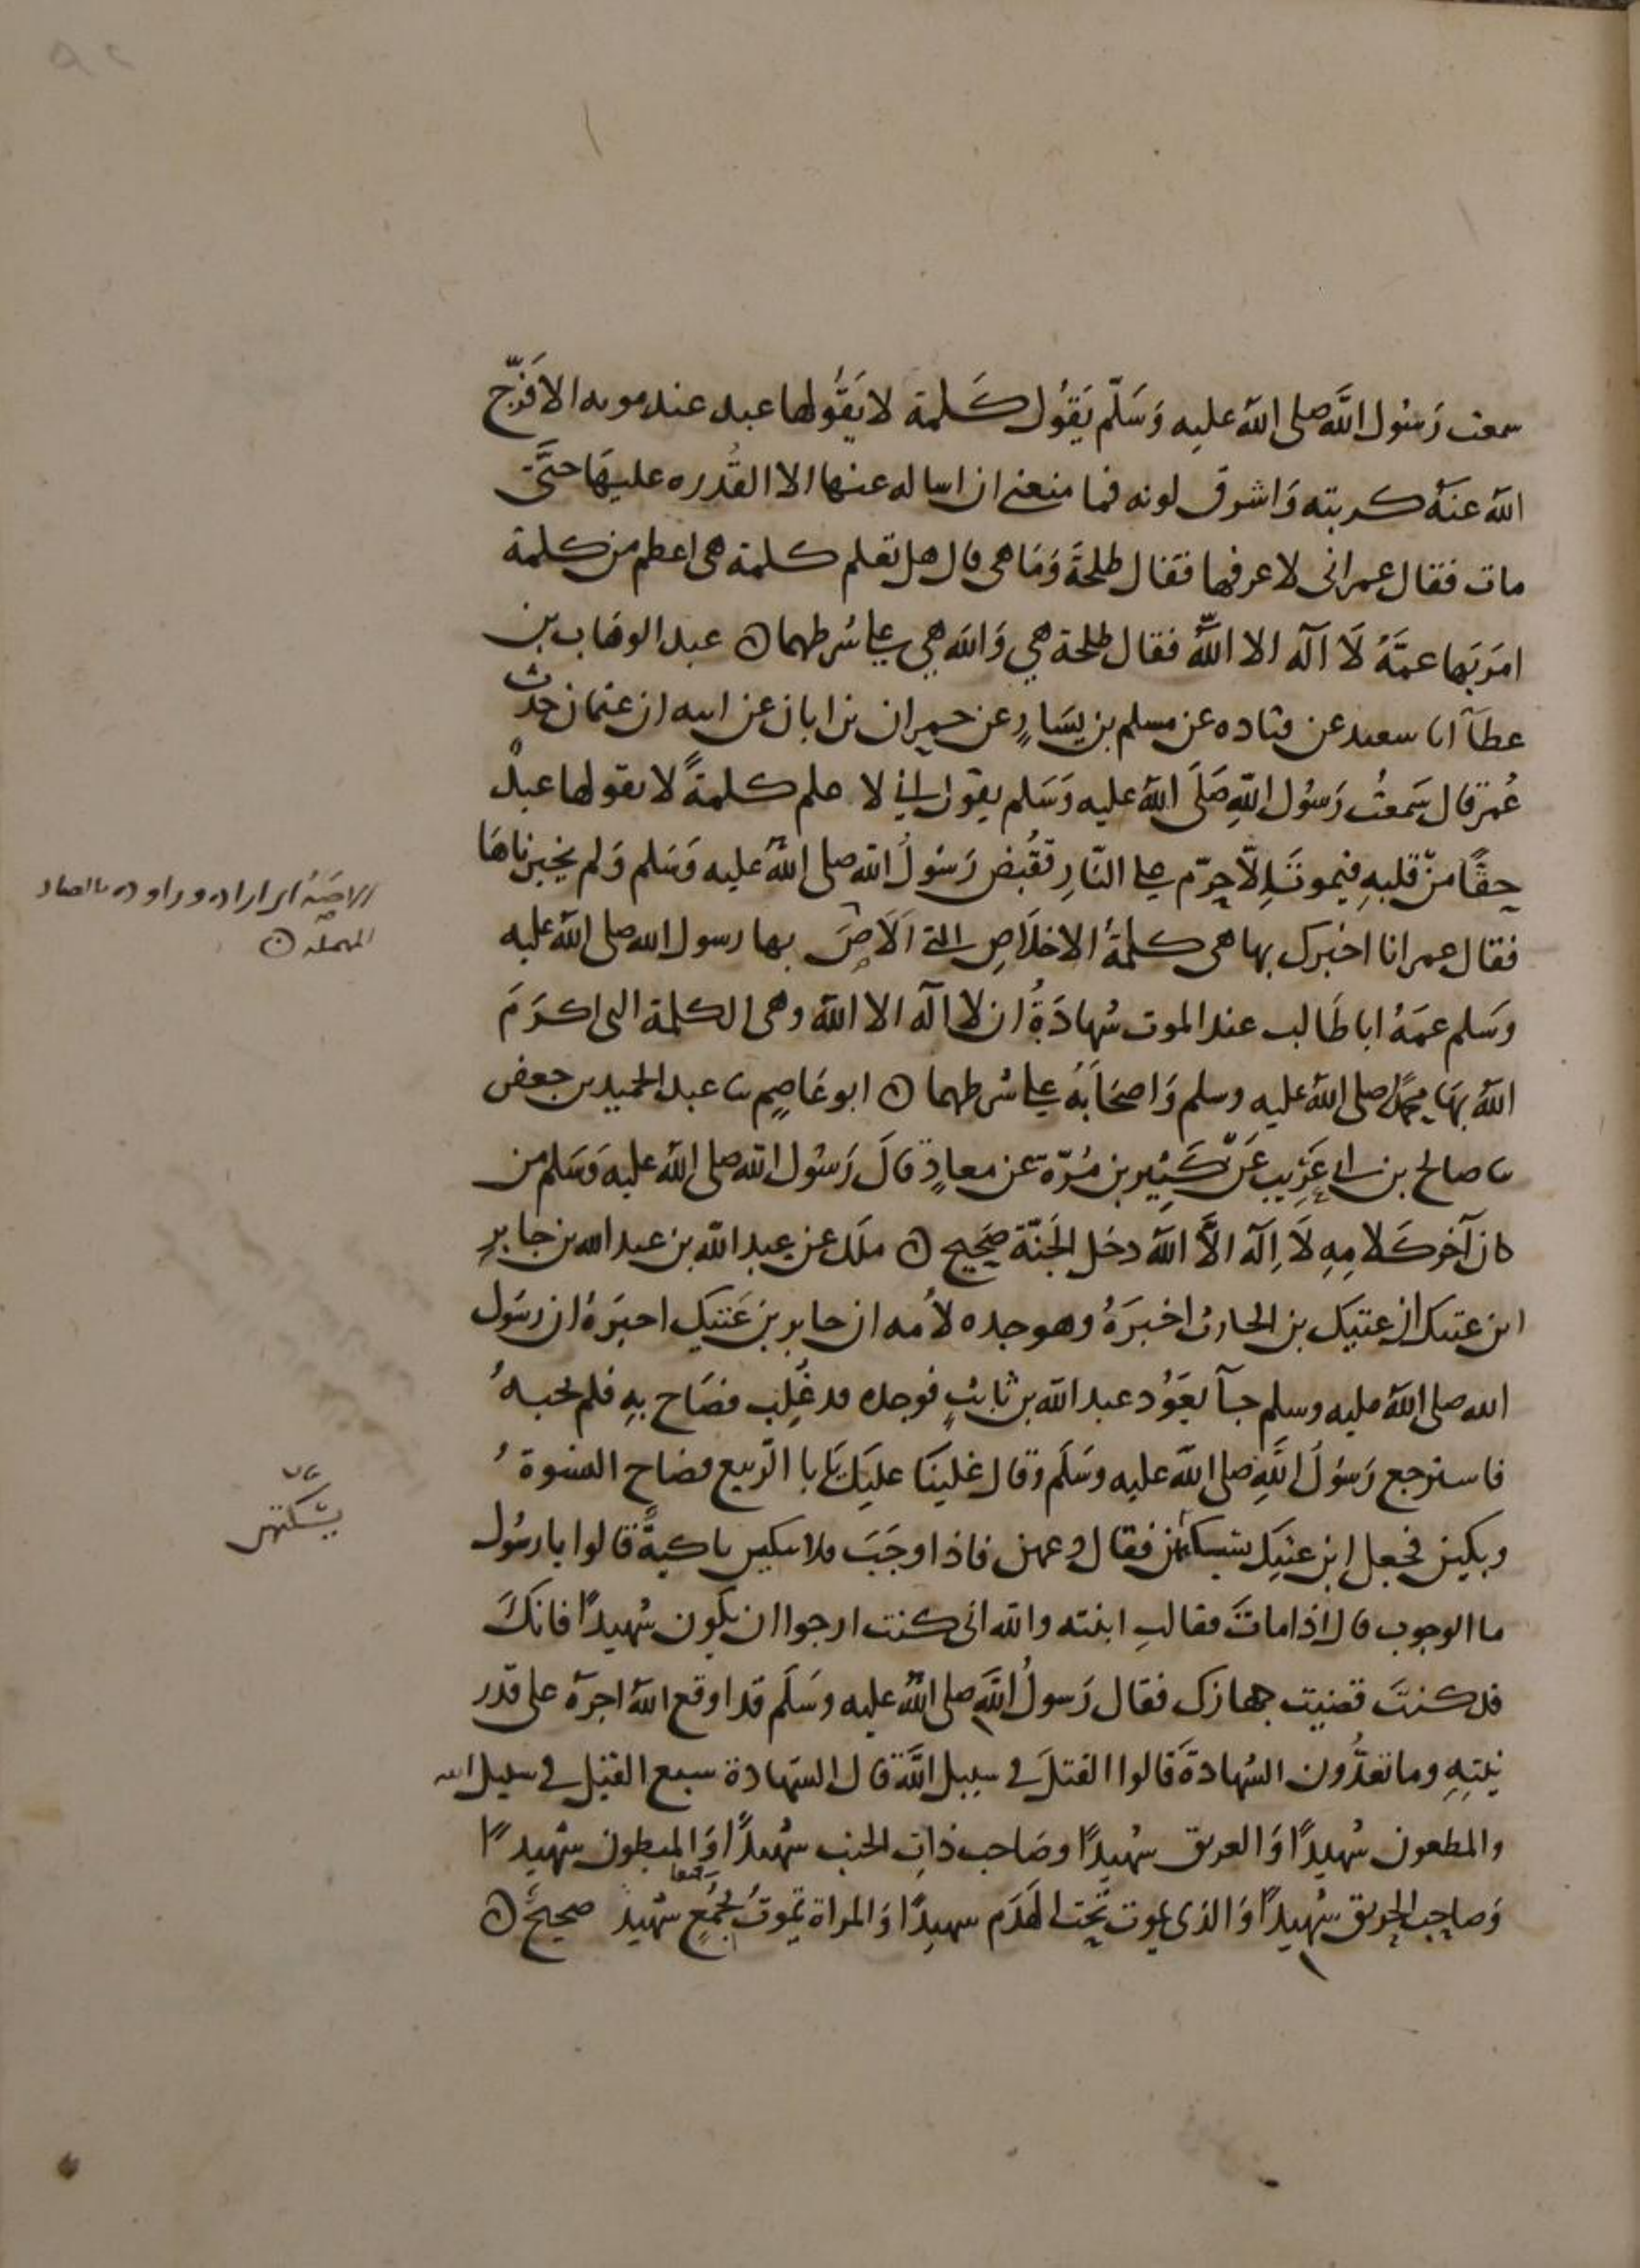 سمعت رَسُول اللَّه صلى اللهُ عليه وَسَلّم يَقوُل كَلمة لا يَقُولها عبد عند موته الا فَرّج
اللهُ عنهُ كربته وَاشرق لونه فما منعنى ان اساله عنها الا القُدره عليهَا حتَّى
مات فقال عمر انى لاعرفها فقال طلحةَ وَمَا هى قال هل تعلم كلمة هى اعظم من كلمة
امَر بَها عمَّهُ لَا اله الا اللهُ فقال طلحة هي وَالله هي على شرطهما ن عبد الوهَاب بن
عطَآ انا سعيد عن قتاده عن مسلم بن يسَارٍ عن حمران بن ابان عن ابيه ان عثمان حدث
عُمر قال سَمعتُ رَسُول اللهِ صَلَى اللهُ عليه وَسَلم يقول انى لا علم كلمةً لا يقولها عبدٌ
حقًا من قلبهِ فيموتَ الّا حرّم على النّارِ فقُبض رَسُولُ الله صلى اللهُ عليه وَسَلم وَلم يخبرناهَا
فقال عمر انا اخبرك بها هى كلمةُ الاخلَاصِ التى اَلَاصَ بها رسول الله صلى اللهُ عليه
وَسَلم عمَهُ ابا طَالب عند الموت شهادَةُ ان لا اله الا الله وهى الكلمة التى اكرَمَ
اللهُ بهَا محمدًا صلى اللهُ عليه وسلم وَاصحَابَهُ على شرطهما ن ابو عَاصِم ثنا عبد الحميد بن جعفر
ثنا صالح بن ابى عَرِيب عَن كَثِير بن مُرّة عن معاذٍ قالَ رَسُول الله صلى اللهُ عليه وَسَلم من
كان آخر كَلامِهِ لَا اِله الَّا اللهُ دخل الجَنّة صَحِيح ن ملك عن عبد الله بن عبد الله بن جابرٍ
ابن عتيك ان عتيك بن الحارث اخبرَهُ وهو جده لأمه ان جابر بن عَتيك اخبَرهُ ان رسَول
الله صلى اللهُ عليه وسلم جآ يعَوُد عبد الله بن ثابتٍ فوجده قد غُلِب فصَاح بهِ فلم يجبهُ
فاسترجع رَسُولُ اللَّهِ صلى اللهُ عليه وسَلَم وَقال غلبنَا عليَك يَابا الرّبيع فصاح النسوةُ
وبكين فجعل ابن عتيَك يسكتهن فقال دعهن فاذا وجَبَ فلا تبكين باكيةً قالوا يا رسُول
ما الوجوب قال اذا ماتَ فقالتِ ابنته والله انى كنت ارجوا ان يكون شهيدًا فانكَ
قد كنتَ قضيت جهازك فقال رَسولُ اللَّهِ صلى اللهُ عليه وسَلَم قد اوقع اللهُ اجرهُ على قدر
نيتِهِ وما تعدُّون الشهادةَ قالوا القتلَ فى سبيل اللَّه قال الشهادة سبع القتل فى سبيل الله
والمطعون شهيدًا وَالغريق شهيدًا وصَاحب ذاتِ الجنب شهيدًا وَالمبطون شهيدًا
وَصاحب الحريق شهيدًا وَالذى يموت تحت الهَدَم شهيدًا وَالمراة تموتُ بجُمْعٍ شهيد صحيح ن
المهملة ن
يسَكتهن